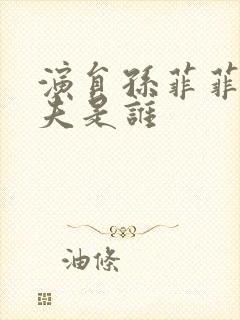 演員孫菲菲
夫是誰
油條